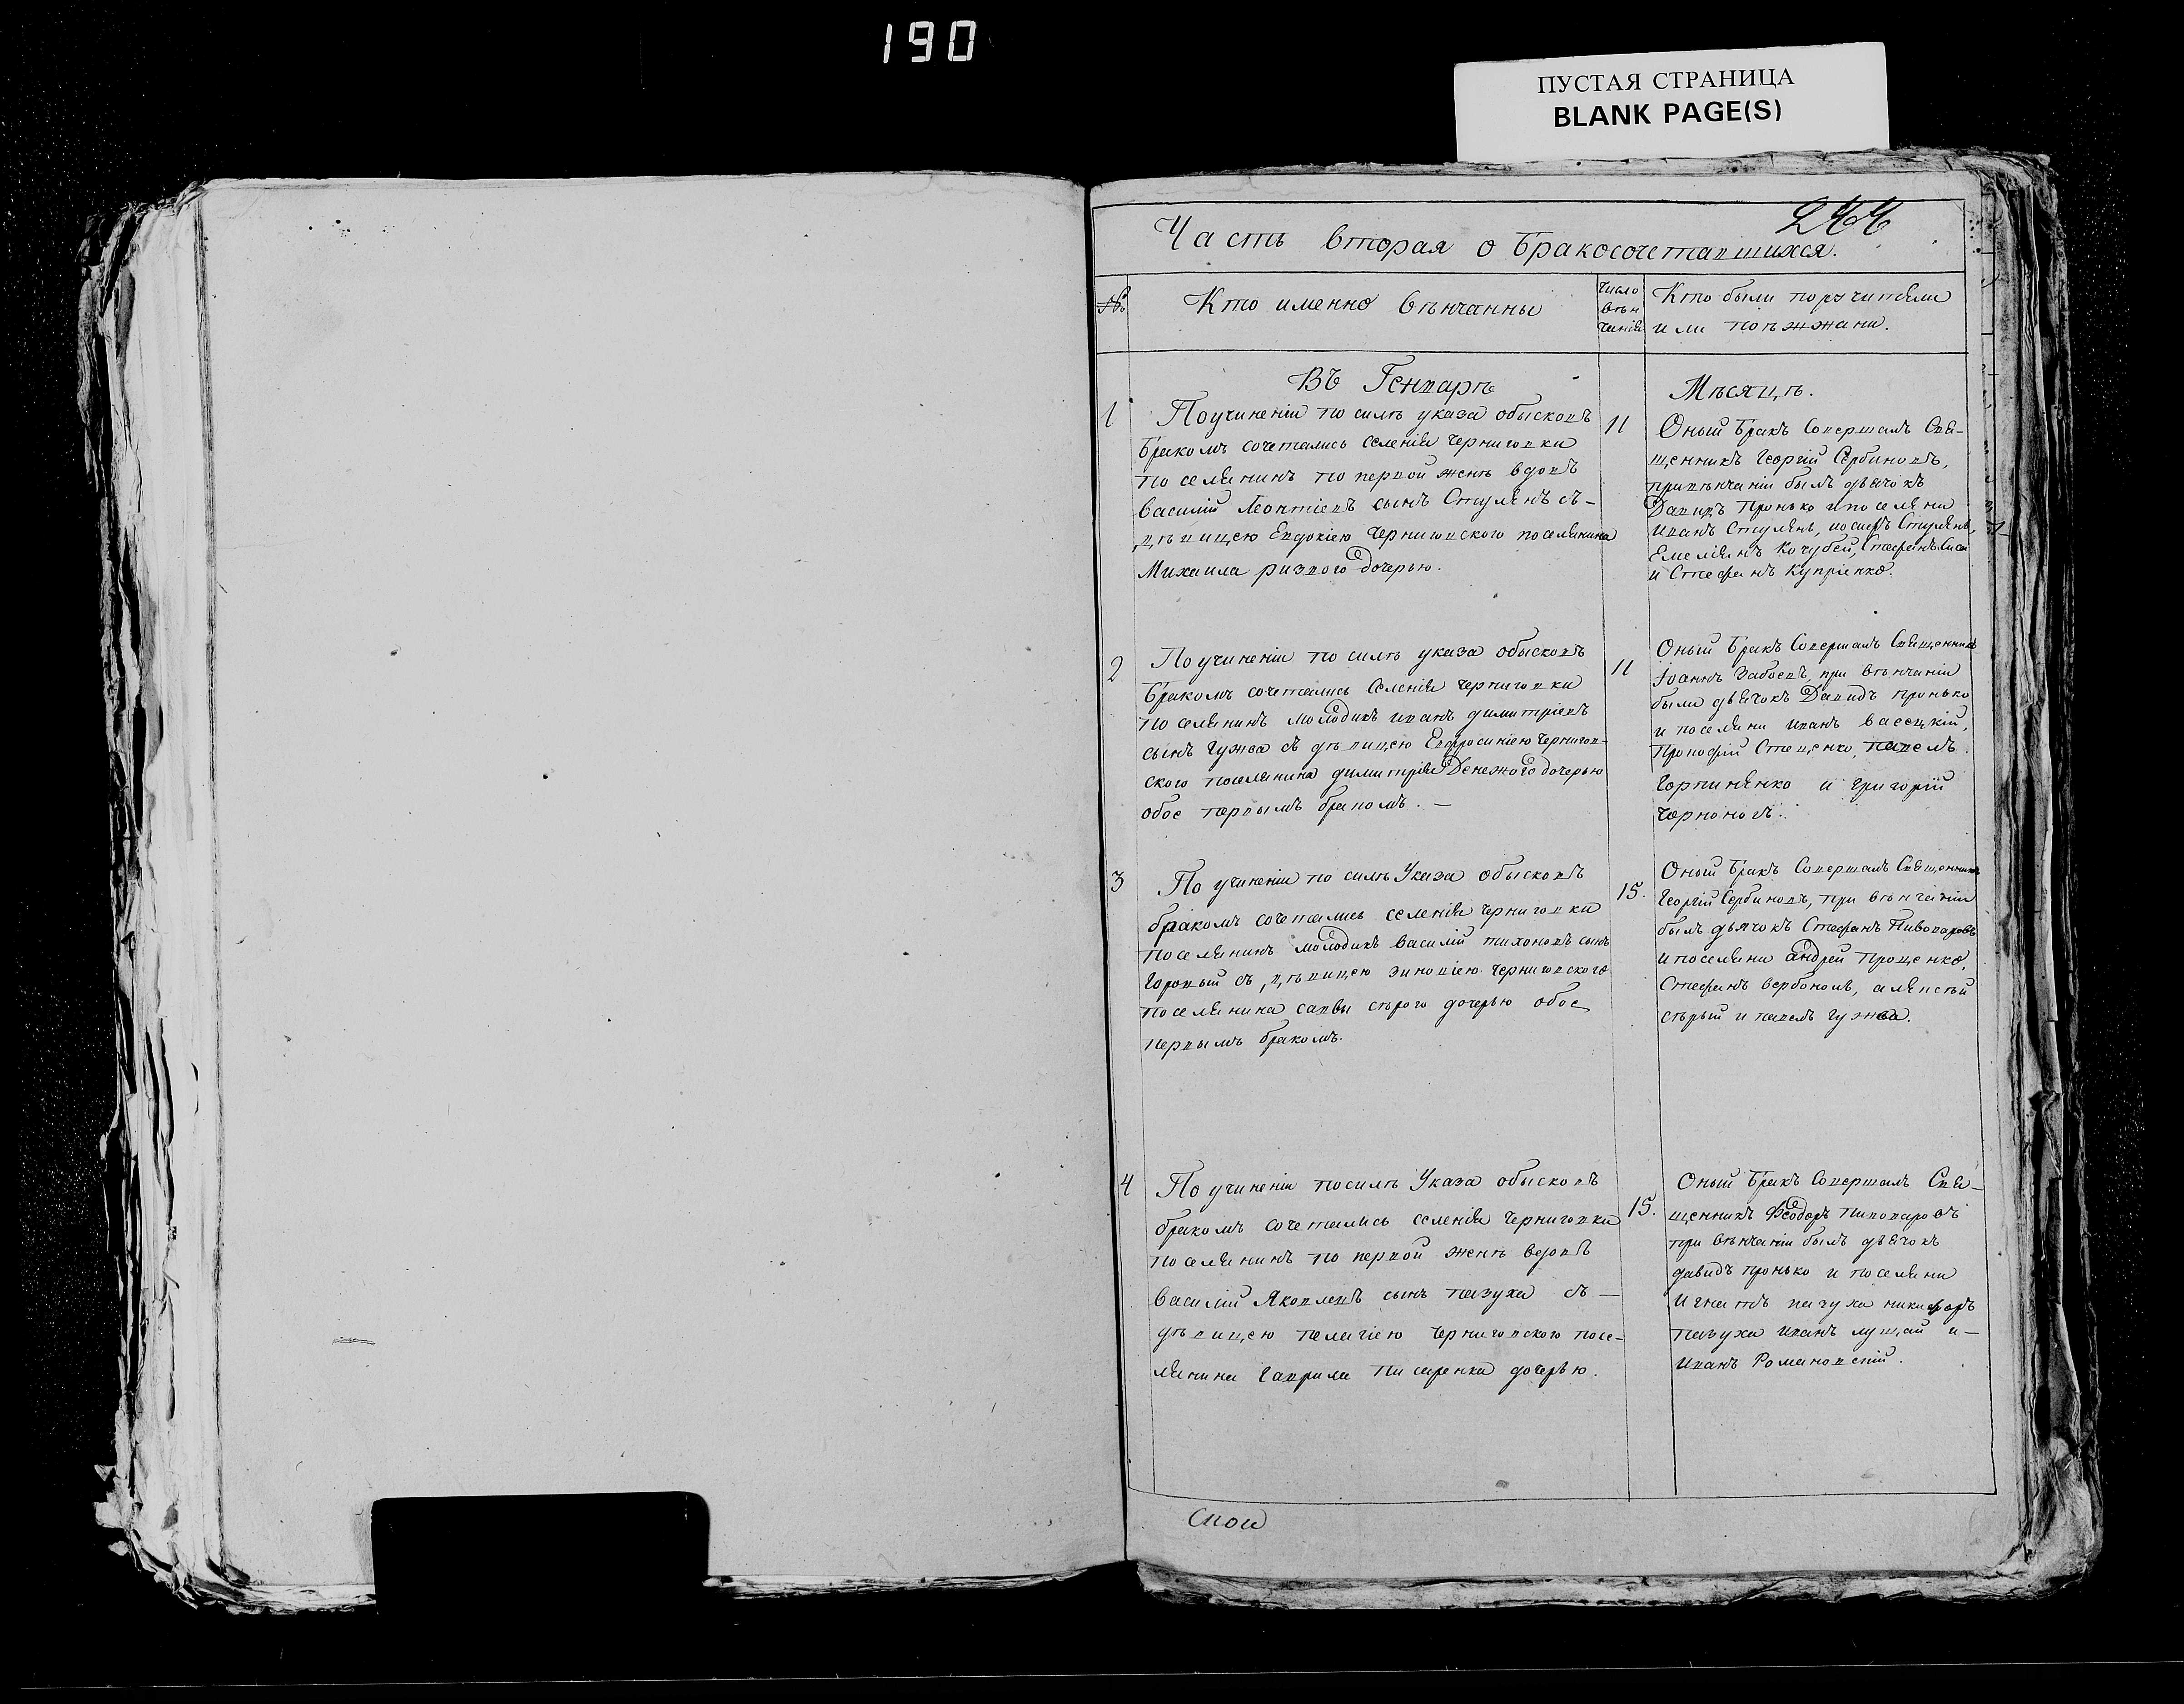 190
ПУСТАЯ СТРАНИЦА
BLANK PAGE(S)
244
Часть вторая о бракосочетавшихся.
№
Кто именно вѣнчанны
Число
вѣн
чанія
Кто были поручители
или поѣжжани.
Въ Генварѣ
Мѣсяцѣ.
1
По учиненіи по силѣ указа обысковъ
бракомъ сочетались селенія Черниговки
поселянинъ по первой женѣ вдовъ
Василій Леонтіевъ сынъ Стулѣнъ съ-
дѣвицею Евдокією Черниговского поселянина
Михаила ризного дочерью.
11
Оный бракъ Совершалъ Свя-
щенникъ Георгій Сербиновъ,
при вѣнчаніи былъ дьячокъ
Давидъ Пронько и поселяни
Иванъ Стулѣнь, иосифъ Стулѣнь,
Емеліянъ Кочубей, Стефанъ
и Стефанъ Купріенко.
2
По учиненіи по силѣ указа обысковъ
бракомъ сочетались селенія Черниговки
поселянинъ молодикъ иванъ димитріевъ
сынъ Гужва съ дѣвицею Евфросиніею Чернигов-
ского поселянина димитрія Денежного дочерью
обое первымъ бракомъ. —
11
Оный бракъ Совершалъ Священникъ
Іоаннъ Забоевъ, при вѣнчаніи
были дьячокъ Давидъ Пронько
и поселяни иванъ васецкій,
Прокофій Стеценко, павелъ
Горпинянко и григорій
Черноногъ.
3
По учиненіи по силѣ Указа обысковъ
бракомъ сочетались селенія Черниговки
поселянинъ молодикъ василій тихоновъ сынъ
Горовый съ дѣвицею зиновіею Черниговского
поселянина саввы сѣрого дочерью обое
первымъ бракомъ.
15.
Оный бракъ Совершалъ Священникъ
Георгій Сербиновъ, при вѣнчаніи
былъ дьячокъ Стефанъ Пивоваровъ
и поселяни андрей Проценко,
Стефанъ вербоноль, алексѣй
сѣрый и павелъ гужва.
4
По учиненіи по силѣ Указа обысковъ
бракомъ сочетались селенія Черниговки
поселянинъ по первой женѣ вдовъ
василій Яковлевъ сынъ пазуха съ —
дѣвицею пелагіею Черниговского посе-
лянина Гаврила писаренка дочерью.
15.
Оный бракъ Совершалъ Свя-
щенникъ Феодоръ Пивоваровъ
при вѣнчаніи былъ дьячокъ
давидъ пронько и поселяни
Игнатъ пазуха никифоръ
пазуха иванъ лущай и —
иванъ Романовскій.